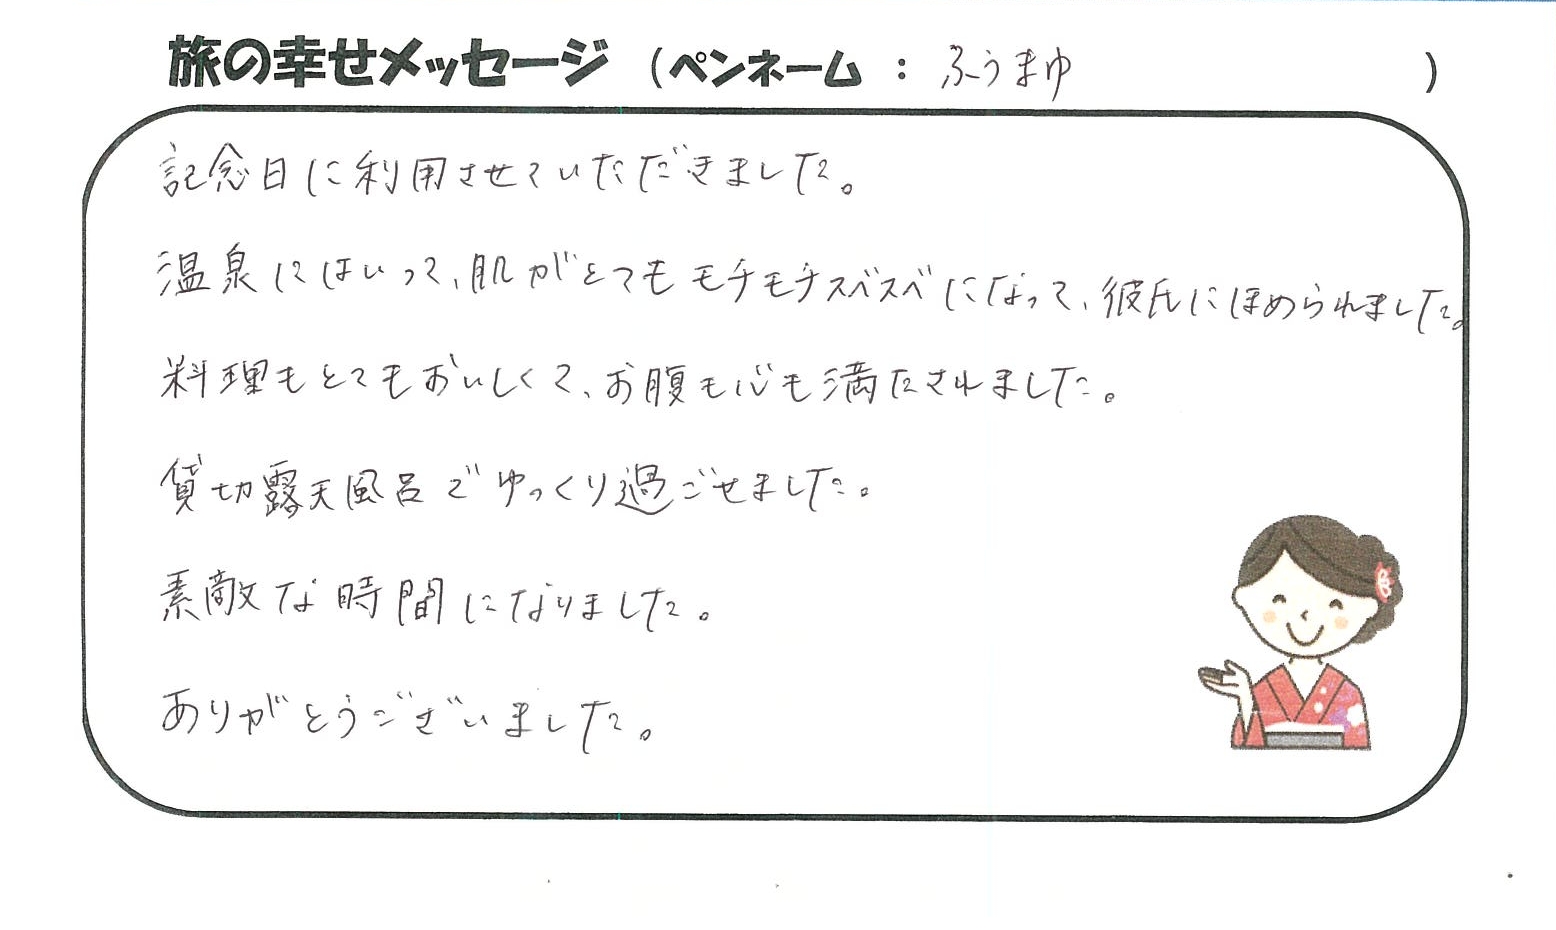 旅の幸せメッセージ (ペンネーム : ふうまゆ )
記念日に利用させていただきました。
温泉にはいって、肌がとてもモチモチスベスベになって、彼氏にほめられました。
料理もとてもおいしくて、お腹も心も満たされました。
貸切露天風呂でゆっくり過ごせました。
素敵な時間になりました。
ありがとうございました。